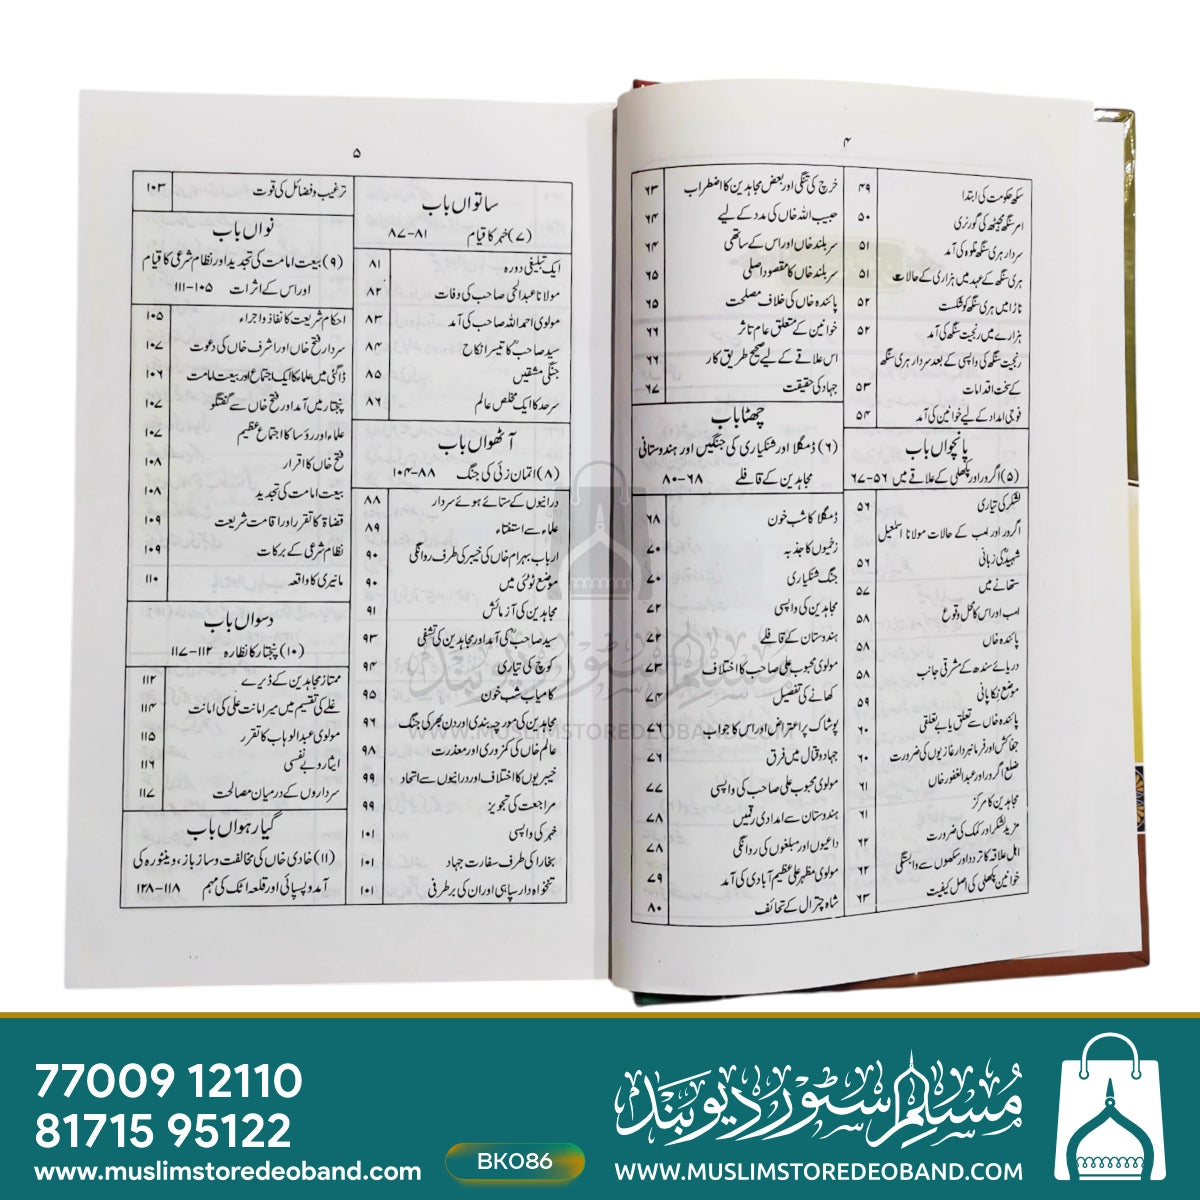 ۴
سکھ حکومت کی ابتدا ۴۹
امر سنگھ مجیٹھ کی گورنری ۵۰
سردار ہری سنگھ نلوہ کی آمد ۵۱
ہری سنگھ کے عہد میں ہزاری کے حالات ۵۱
نازا میں ہری سنگھ کو شکست ۵۲
ہزارے میں رنجیت سنگھ کی آمد ۵۲
رنجیت سنگھ کی واپسی کے بعد سردار ہری سنگھ
کے سخت اقدامات ۵۳
فوجی امداد کے لیے خوانین کی آمد ۵۴
پانچواں باب
(۵) اگرور اور پکھلی کے علاقے میں ۵۶-۶۷
لشکر کی تیاری ۵۶
اگرور اور امب کے حالات مولانا اسمٰعیل
شہیدؒ کی زبانی ۵۶
ستھانے میں ۵۷
امب اور اس کا محل وقوع ۵۸
پائندہ خاں ۵۸
دریائے سندھ کے مشرقی جانب ۵۸
موضع نکا پانی ۵۹
پائندہ خاں سے تعلق یا بے تعلقی ۶۰
جفاکش اور فرمانبردار غازیوں کی ضرورت ۶۰
ضلع اگرور اور عبدالغفور خاں ۶۱
مجاہدین کا مرکز ۶۱
مزید لشکر اور کمک کی ضرورت ۶۲
اہل علاقہ کا تردد اور سکھوں سے وابستگی ۶۲
خوانین پکھلی کی اصل کیفیت ۶۳
خرچ کی تنگی اور بعض مجاہدین کا اضطراب ۶۳
حبیب اللہ خاں کی مدد کے لیے ۶۴
سربلند خاں اور اس کے ساتھی ۶۴
سربلند خاں کا مقصود اصلی ۶۵
پائندہ خاں کی خلاف مصلحت ۶۵
خوانین کے متعلق عام تاثر ۶۶
اس علاقے کے لیے صحیح طریق کار ۶۶
جہاد کی حقیقت ۶۷
چھٹا باب
(۶) ڈمگلا اور شنکیاری کی جنگیں اور ہندوستانی
مجاہدین کے قافلے ۶۸-۸۰
ڈمگلا کا شب خون ۶۸
زخمیوں کا جذبہ ۷۰
جنگ شنکیاری ۷۰
مجاہدین کی واپسی ۷۲
ہندوستان کے قافلے ۷۲
مولوی محبوب علی صاحب کا اختلاف ۷۳
کھانے کی تفصیل ۷۴
پوشاک پر اعتراض اور اس کا جواب
جہاد و قتال میں فرق ۷۶
مولوی محبوب علی صاحب کی واپسی ۷۷
ہندوستان سے امدادی رقمیں ۷۸
داعیوں اور مبلغوں کی روانگی ۷۸
مولوی مظہر علی عظیم آبادی کی آمد ۷۹
شاہ چترال کے تحائف ۸۰
۵
ساتواں باب
(۷) خہر کا قیام ۸۱-۸۷
ایک تبلیغی دورہ ۸۱
مولانا عبدالحی صاحب کی وفات ۸۲
مولوی احمد اللہ صاحب کی آمد ۸۳
سید صاحبؒ کا تیسرا نکاح ۸۴
جنگی مشقیں ۸۵
سرحد کا ایک مخلص عالم ۸۶
آٹھواں باب
(۸) اتمان زئی کی جنگ ۸۸-۱۰۴
درانیوں کے ستائے ہوئے سردار ۸۸
علماء سے استفتاء ۸۹
ارباب بہرام خاں کی خیبر کی طرف روانگی ۹۰
موضع ٹوٹئی میں ۹۰
مجاہدین کی آزمائش ۹۱
سید صاحبؒ کی آمد اور مجاہدین کی تشفی ۹۳
کوچ کی تیاری ۹۴
کامیاب شب خون ۹۵
مجاہدین کی مورچہ بندی اور دن بھر کی جنگ ۹۶
عالم خاں کی کمزوری اور معذرت ۹۸
خیبریوں کا اختلاف اور درانیوں سے اتحاد ۹۹
مراجعت کی تجویز ۹۹
خہر کی واپسی ۱۰۱
بخارا کی طرف سفارت جہاد ۱۰۱
تنخواہ دار سپاہی اور ان کی برطرفی ۱۰۱
ترغیب و فضائل کی قوت ۱۰۳
نواں باب
(۹) بیعت امامت کی تجدید اور نظام شرعی کا قیام
اور اس کے اثرات ۱۰۵-۱۱۱
احکام شریعت کا نفاذ و اجراء ۱۰۵
سردار فتح خاں اور اشرف خاں کی دعوت ۱۰۷
ڈاگئی میں علماء کا ایک اجتماع اور بیعت امامت ۱۰۶
پنجتار میں آمد اور فتح خاں سے گفتگو ۱۰۷
علماء اور رؤسا کا اجتماع عظیم ۱۰۷
فتح خاں کا اقرار ۱۰۸
بیعت امامت کی تجدید ۱۰۸
قضاۃ کا تقرر اور اقامت شریعت ۱۰۹
نظام شرعی کے برکات ۱۰۹
مانیری کا واقعہ ۱۱۰
دسواں باب
(۱۰) پنجتار کا نظارہ ۱۱۲-۱۱۷
ممتاز مجاہدین کے ڈیرے ۱۱۲
غلے کی تقسیم میں میر امانت علی کی امانت ۱۱۴
مولوی عبدالوہاب کا تقرر ۱۱۵
ایثار و بے نفسی ۱۱۶
سرداروں کے درمیان مصالحت ۱۱۷
گیارہواں باب
(۱۱) خادی خاں کی مخالفت و ساز باز، وینٹورہ کی
آمد و پسپائی اور قلعہ اٹک کی مہم ۱۱۸-۱۲۸
مسلم سٹور دیوبند
WWW.MUSLIMSTOREDEOBAND.COM
77009 12110
81715 95122
www.muslimstoredeoband.com
BK086
مسلم سٹور دیوبند
WWW.MUSLIMSTOREDEOBAND.COM